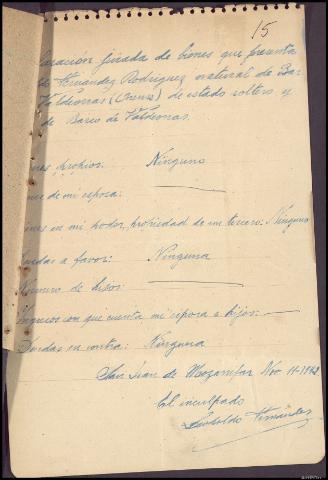 15
laración jurada de bienes que presenta
Fernández Rodríguez natural de Bar-
Valdeorras (Orense) de estado soltero y
de Barco de Valdeorras.
nes propios: Ninguno
de mi esposa:
nes en mi poder, propiedad de un tercero: Ninguno
das a favor: Ninguna
Número de hijos:
Ingresos con que cuenta mi esposa e hijos:
Deudas en contra: Ninguna
San Juan de Mozarrifar Nov
El inculpado
Leopoldo Fernández